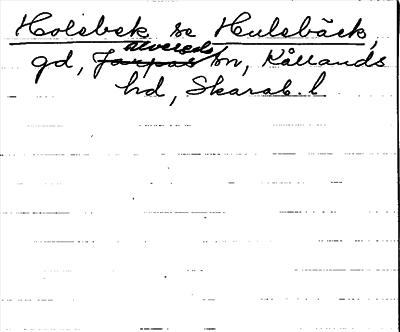 Holsbek se Hulsbäck,
Alvereds
gd, Jarpås sn, Kållands
hd, Skarab. l